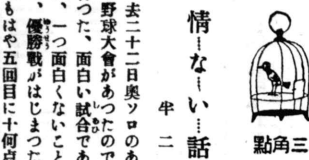 三角點
情…な…い…話
半二
去二十二日奥ソロのあ
野球大會があつたので
つた、面白い試合であ
、一つ面白くないこと
、優勝戰がはじまつた
もはや五回目に十何点